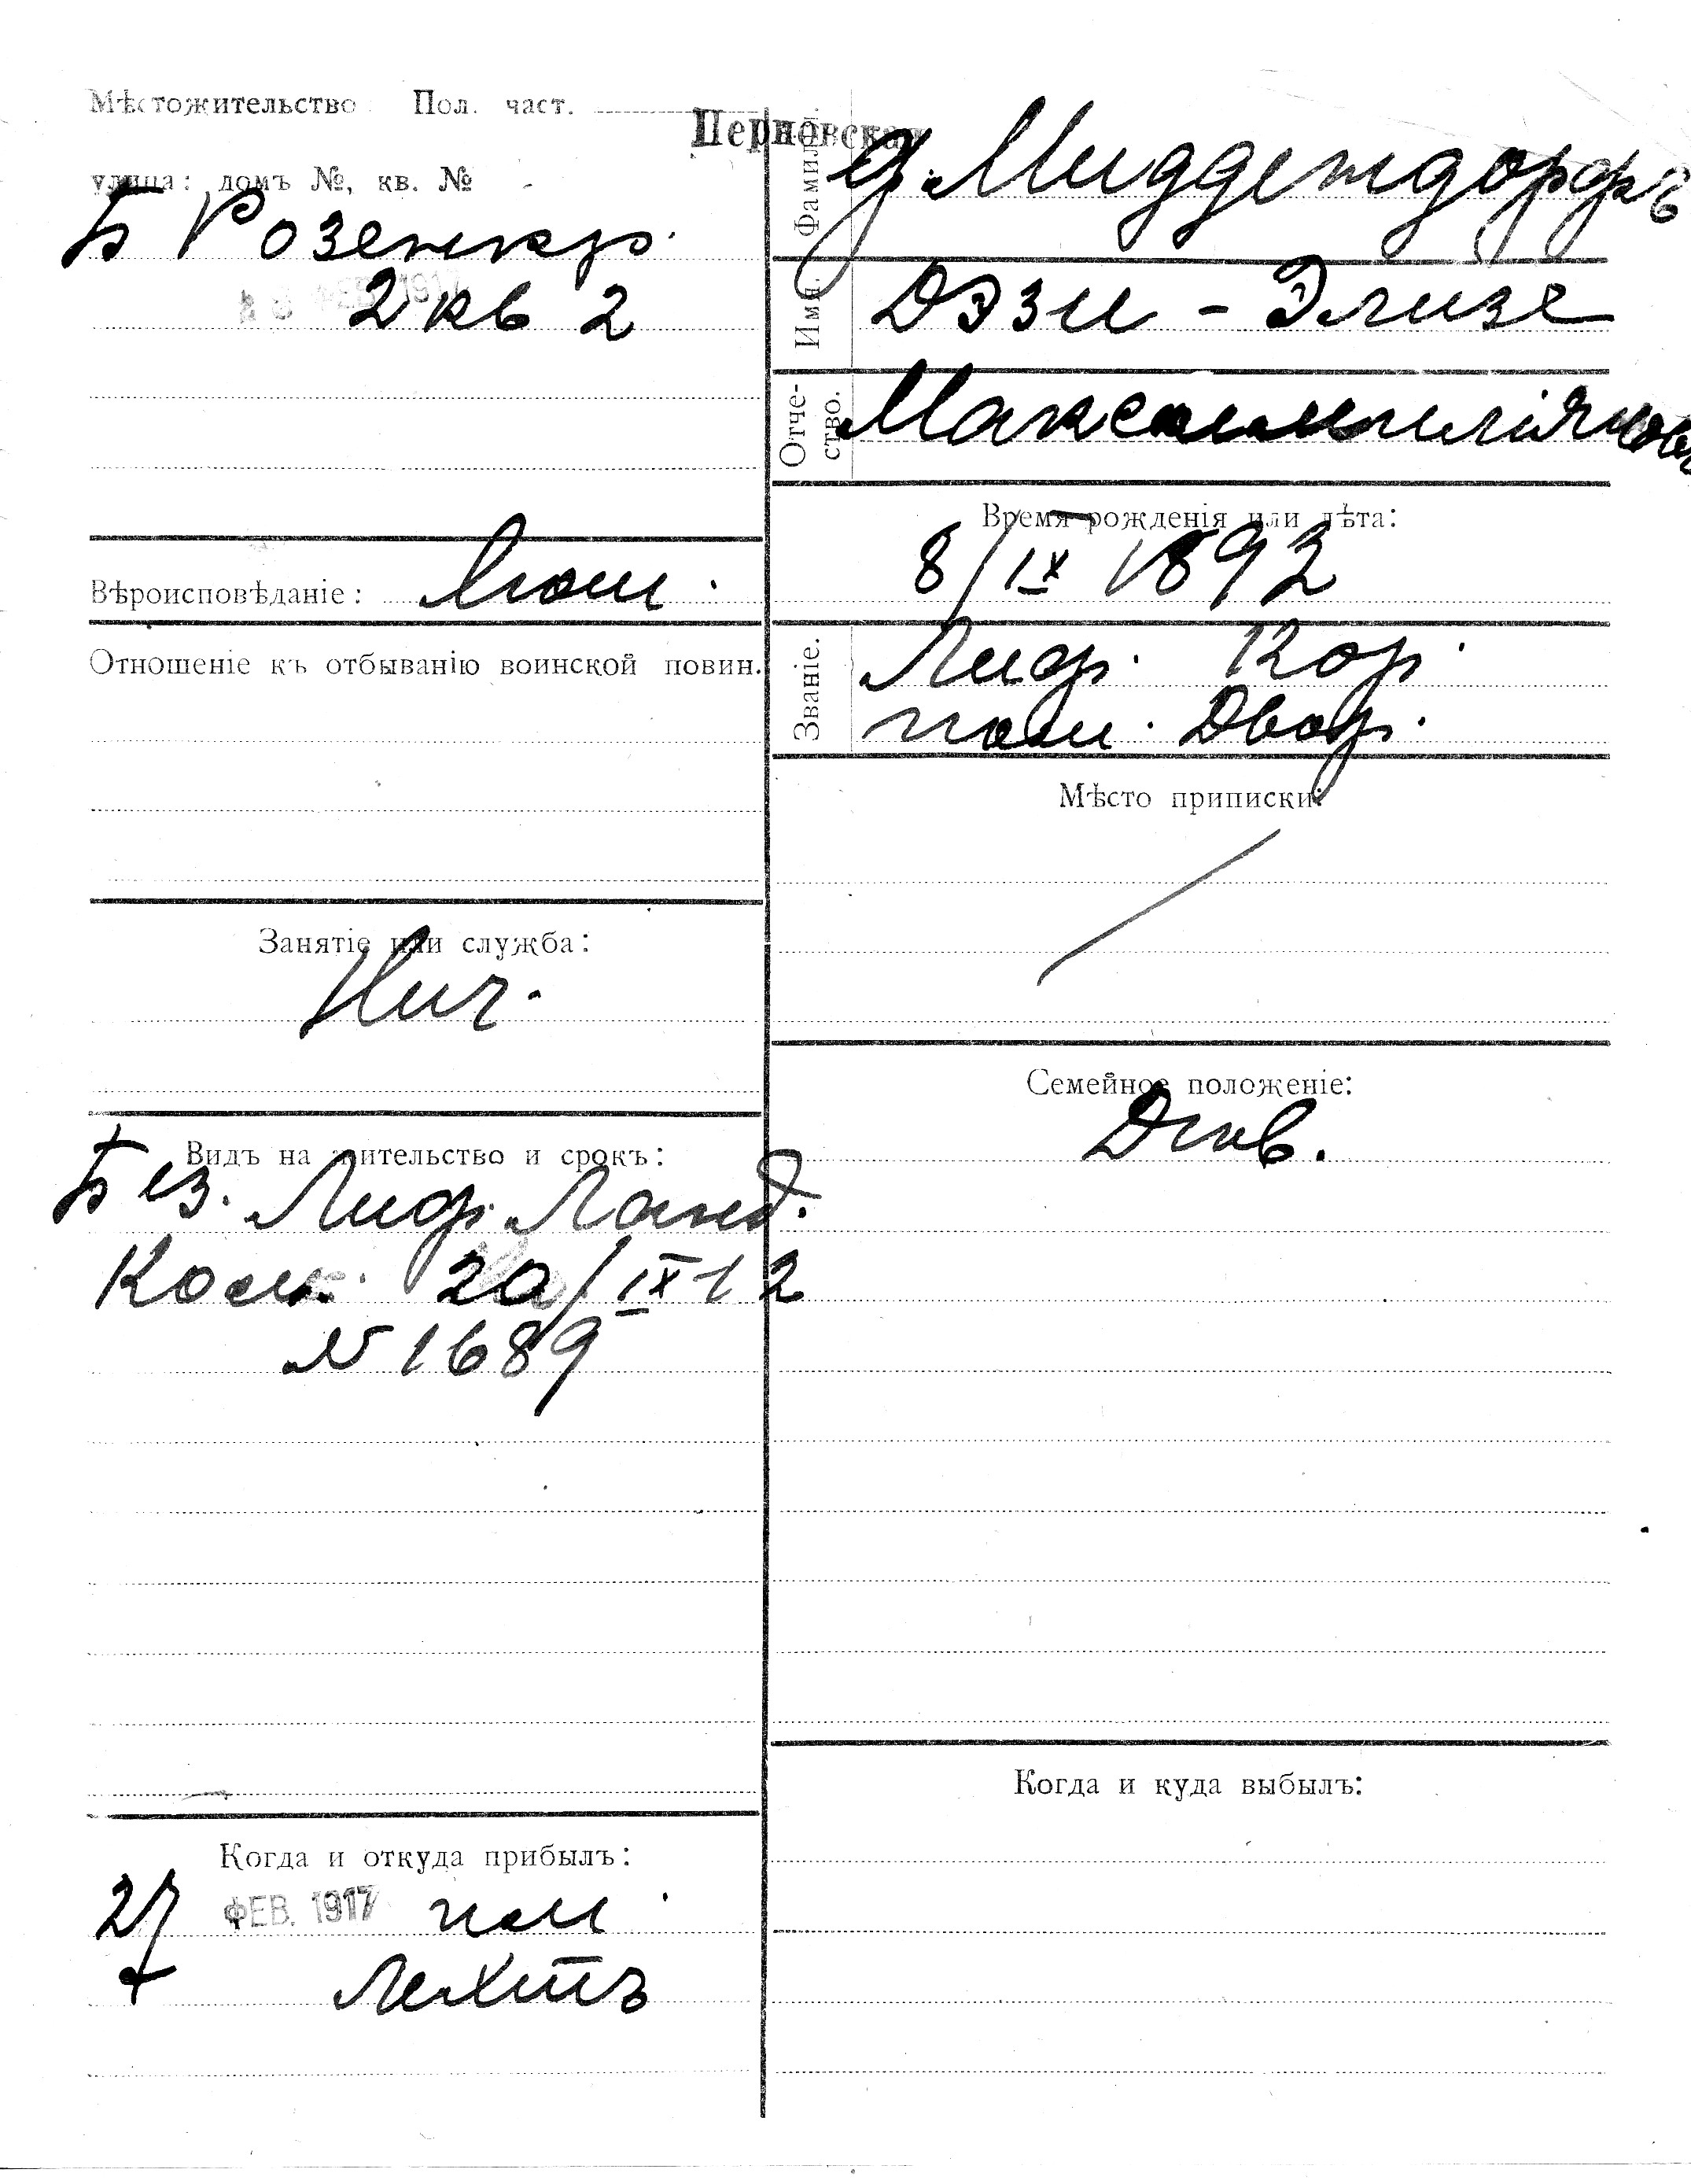 Мѣстожительство: Пол. част.
Перновская
улица: домъ №, кв. №
Б Розенкр.
ФЕВ 1917
2 кв 2
Вѣроисповѣданіе: Лют.
Отношеніе къ отбыванію воинской повин.
Занятіе или служба:
Нич.
Видъ на жительство и срокъ:
Без. Лиф. Ланд.
Колл. 20/IX 12
№ 1689
Когда и откуда прибылъ:
27 ФЕВ. 1917 им.
Лехтъ
Фамилія. ф. Миддендорфъ
Имя. Дэзи - Элизе
Отче-
ство. Максимиліановн
Время рожденія или лѣта:
8/IX 1892
Званіе. Лиф. Кор.
пот. Двор.
Мѣсто приписки:
Семейное положеніе:
Дѣв.
Когда и куда выбылъ: